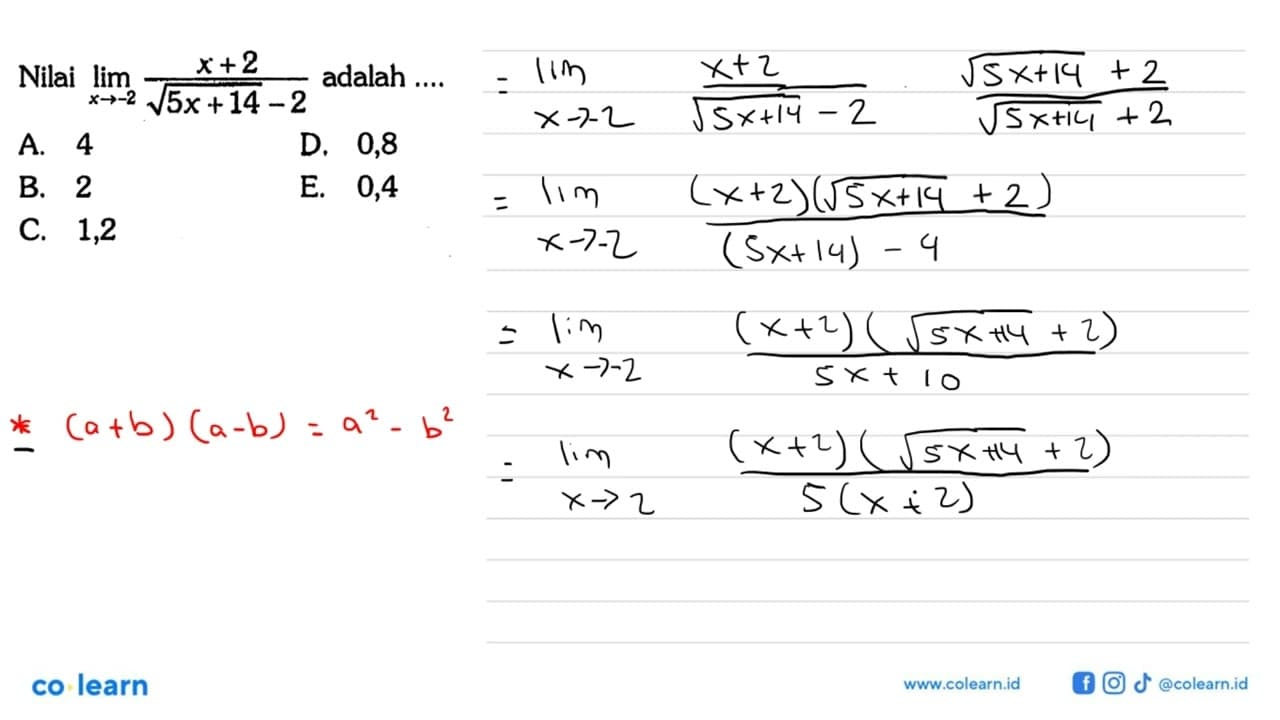 Nilai lim x→-2 (x + 2)/(√(5x + 14) – 2) adalah ....
A. 4
B. 2
C. 1,2
D. 0,8
E. 0,4
= lim x→-2 (x+2)/(√(5x+14) – 2) (√(5x+14) + 2)/(√(5x+14) + 2)
= lim x→-2 ((x+2)(√(5x+14) + 2))/((5x+14) – 4)
= lim x→-2 ((x+2)(√(5x+14) + 2))/(5x + 10)
* (a+b)(a-b) = a² - b²
= lim x→2 ((x+2)(√(5x+14) + 2))/(5(x+2))
co learn
www.colearn.id
@colearn.id